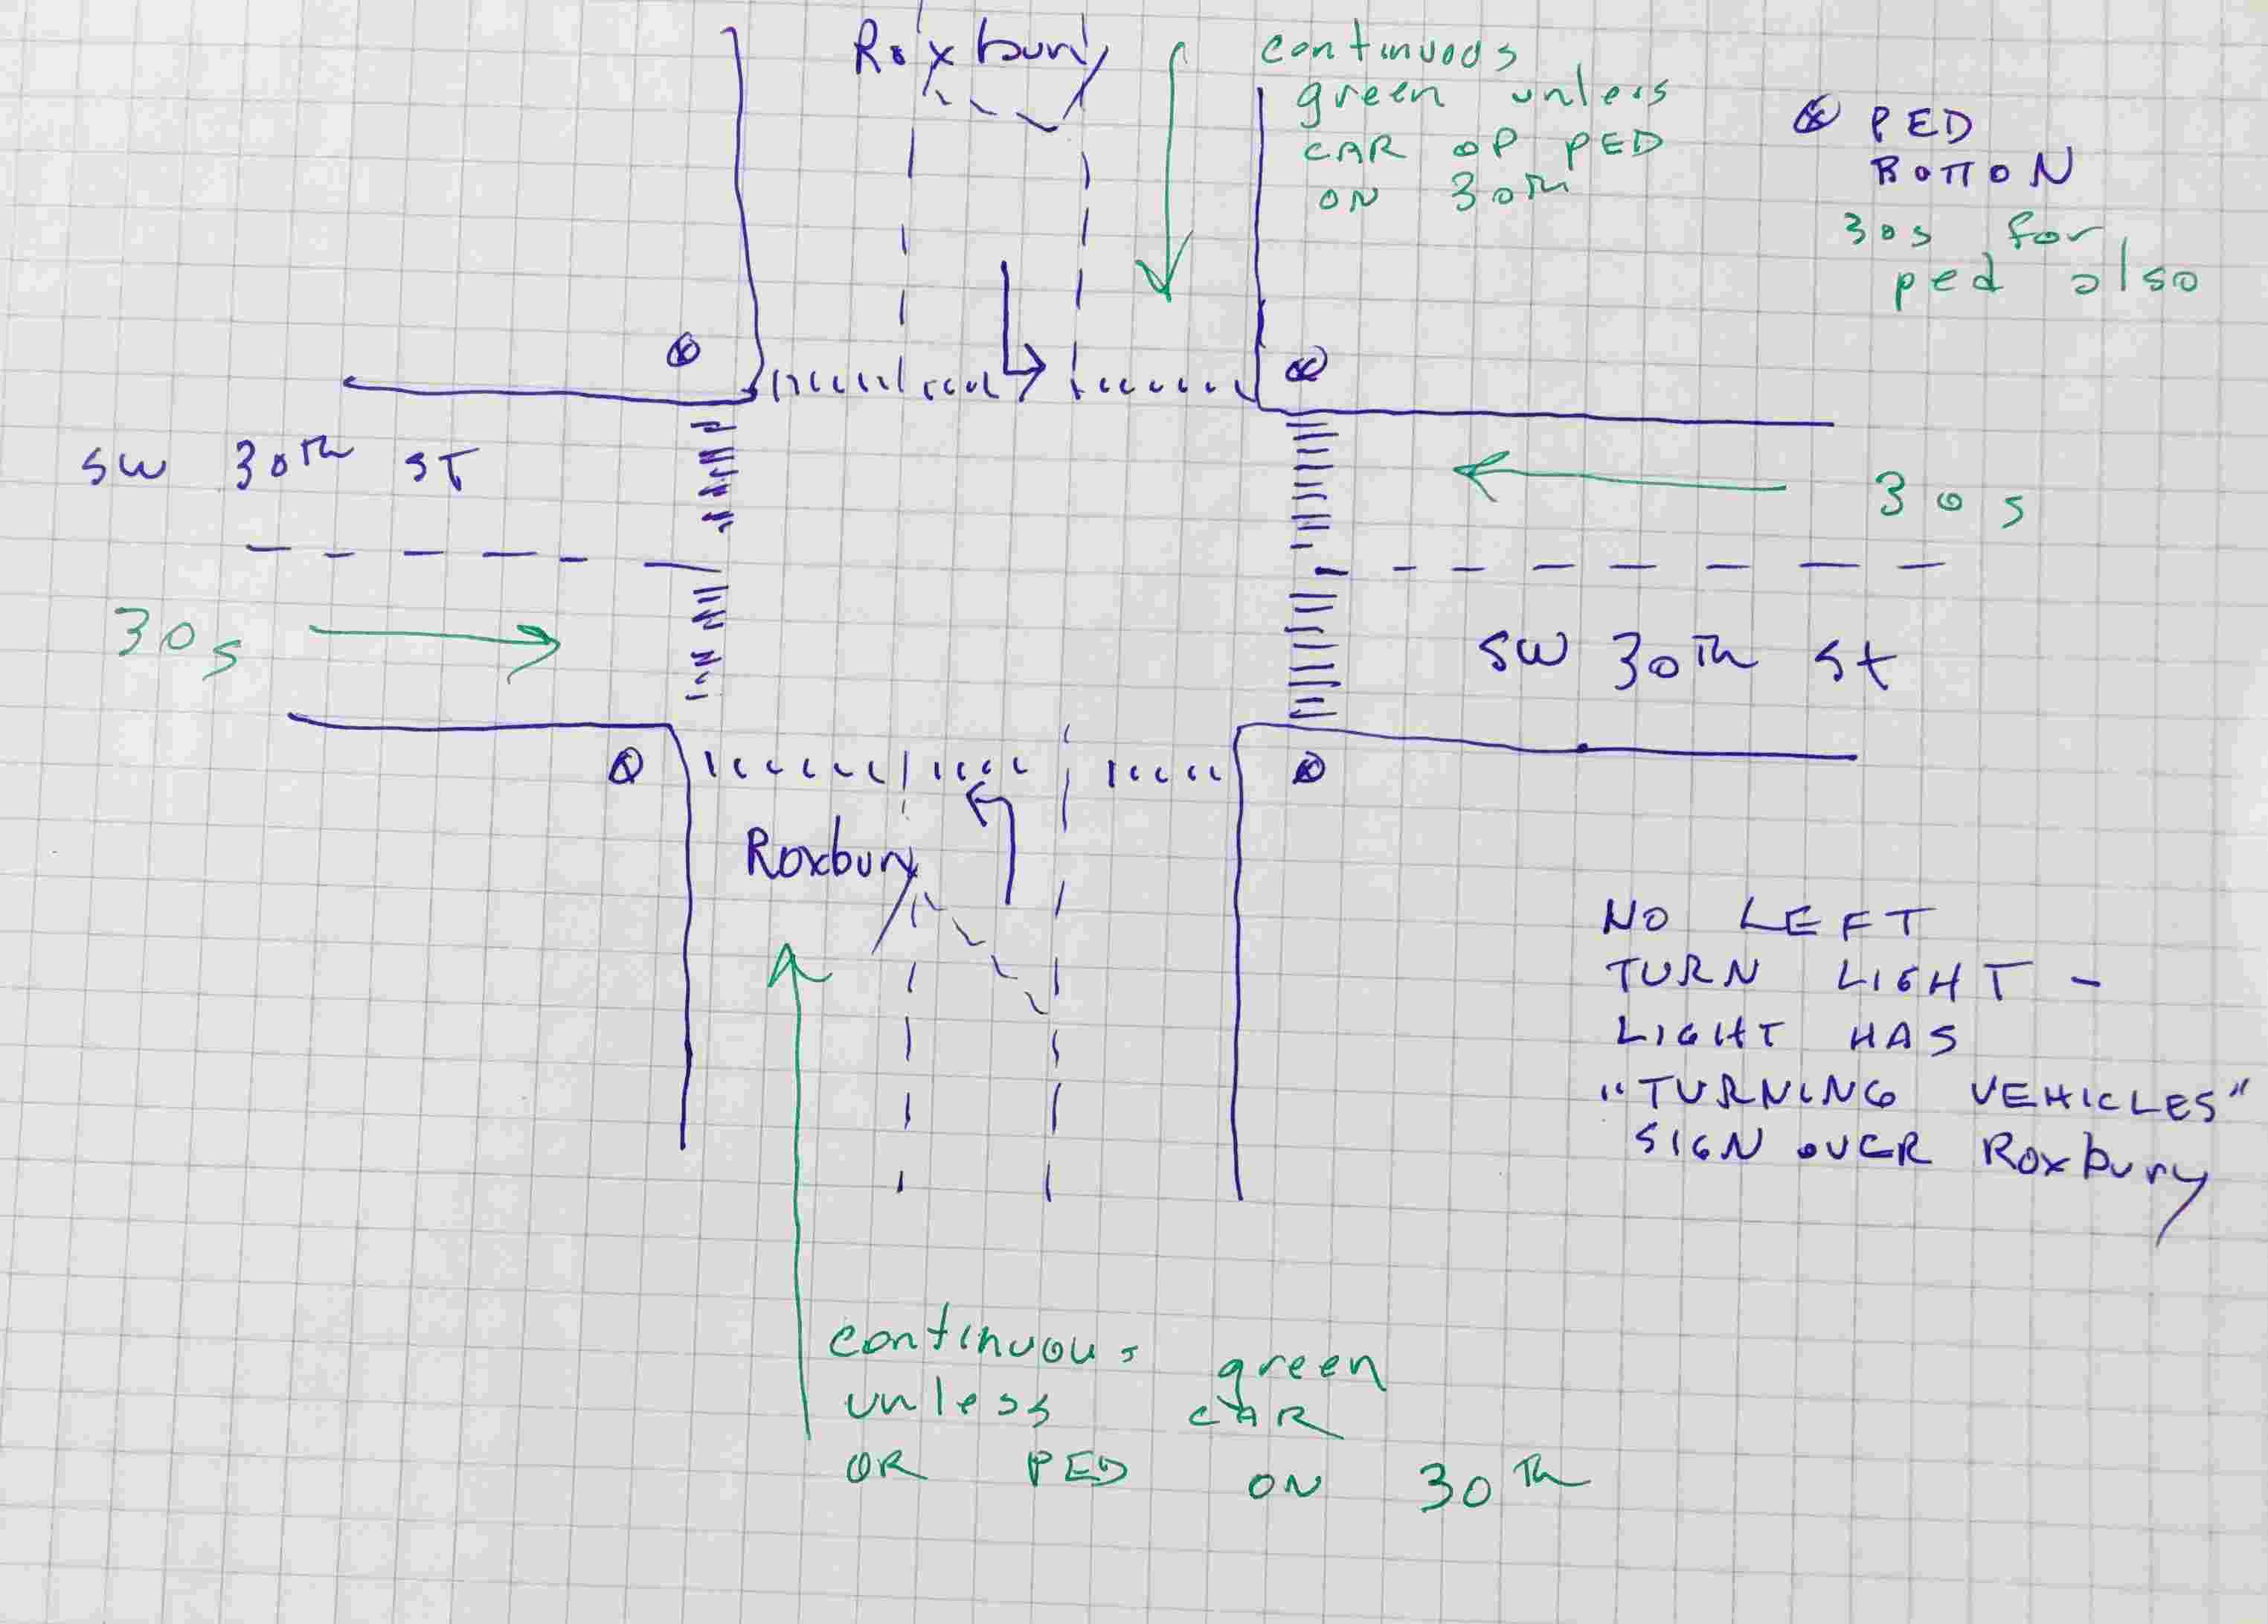 Roxbury
continuous
green unless
CAR OR PED
ON 30Th
PED
BUTTON
30s for
ped also
SW 30Th ST
30s
30s
SW 30Th St
Roxbury
NO LEFT
TURN LIGHT -
LIGHT HAS
"TURNING VEHICLES"
SIGN OVER Roxbury
continuous green
unless CAR
OR PED ON 30Th